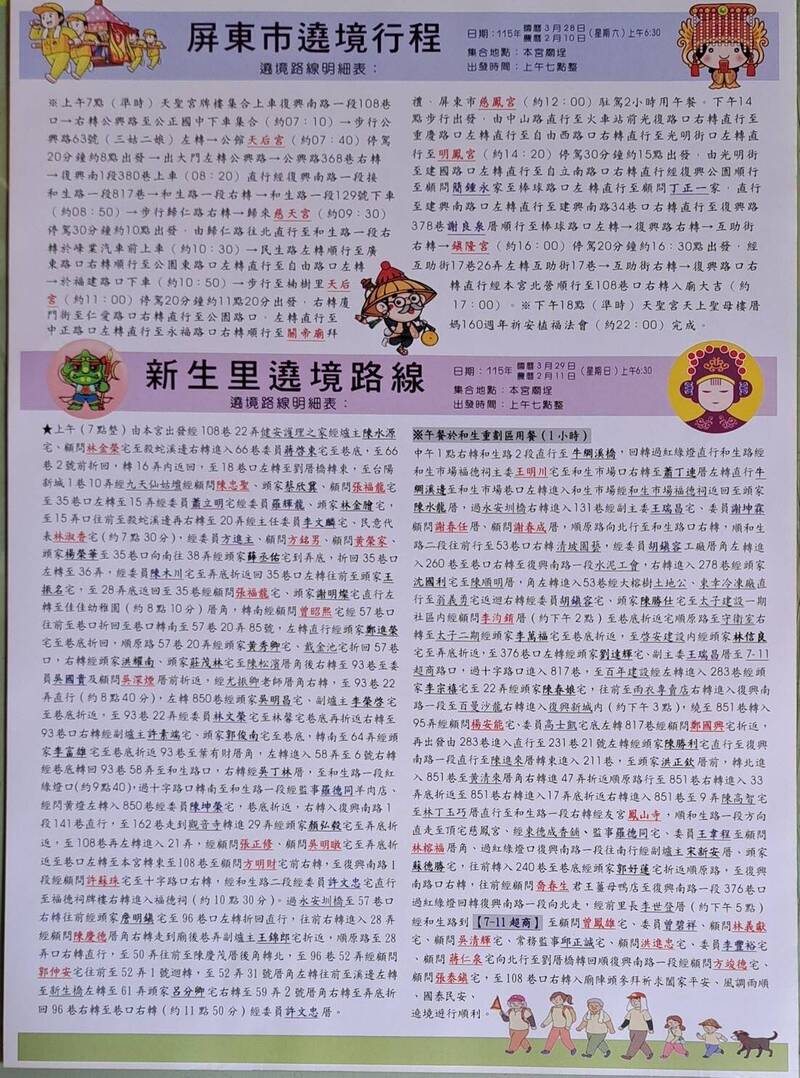 屏東市遶境行程
遶境路線明細表：
日期：115年 國曆3月28日 農曆2月10日 (星期六)上午6:30
集合地點：本宮廟埕
出發時間：上午七點整
※上午7點（準時）天聖宮牌樓集合上車復興南路一段108巷
口→右轉公興路至公正國中下車集合（約07:10）→步行公
興路63號（三姑二娘）左轉→公館天后宮（約07:40）停駕
20分鐘約8點出發→出大門左轉公興路→公興路368巷右轉
→復興南1段380巷上車（08:20）直行經復興南路一段接
和生路一段817巷→和生路一段右轉→和生路一段129號下車
（約08:50）→步行歸仁路右轉→歸來慈天宮（約09:30）
停駕30分鐘約10點出發，由歸仁路往北直行至和生路一段右
轉於峰業汽車前上車（約10:30）→民生路左轉順行至廣
東路口右轉順行至公園東路口左轉直行至自由路口左轉
→於福建路口下車（約10:50）→步行至柚樹里天后
宮（約11:00）停駕20分鐘約11點20分出發，右轉廈
門街至仁愛路口右轉直行至公園路口，左轉直行至
中正路口左轉直行至永福路口右轉順行至關帝廟拜
禮，屏東市慈鳳宮（約12:00）駐駕2小時用午餐。下午14
點步行出發，由中山路直行至火車站前光復路口右轉直行至
重慶路口左轉直行至自由西路口右轉直行至光明街口左轉直
行至明鳳宮（約14:20）停駕30分鐘約15點出發，由光明街
至建國路口左轉直行至自立南路口右轉直行經復興公園順行
至顧問簡鍾永家至棒球路口左轉直行至顧問丁正一家，直行
至建南路口左轉直行至建興南路34巷口右轉直行至復興路
378巷謝良泉厝順行至棒球路口左轉→復興路右轉→互助街
右轉→鎮隆宮（約16:00）停駕20分鐘約16:30點出發，經
互助街17巷26弄左轉互助街17巷→互助街右轉→復興路口右
轉直行經本宮北營順行至108巷口右轉入廟大吉（約
17:00）。※下午18點（準時）天聖宮天上聖母樓厝
媽160週年祈安植福法會（約22:00）完成。
新生里遶境路線
遶境路線明細表：
日期：115年 國曆3月29日 農曆2月11日 (星期日)上午6:30
集合地點：本宮廟埕
出發時間：上午七點整
★上午（7點整）由本宮出發經108巷22弄健安護理之家經爐主陳水源
宅、顧問林金榮宅至殺蛇溪邊右轉進入66巷委員蔣啓東宅至巷底，至66
巷2號前折回，轉16弄內返回，至18巷口左轉至劉厝橋轉東，至台陽
新城1巷10弄經九天仙姑壇經顧問陳忠聖、頭家蔡欣霖、顧問張福龍宅
至35巷口左轉至15弄經委員蕭立明宅經委員羅輝龍、頭家林金膾宅，
至15弄口往前至殺蛇溪邊再右轉至20弄經主任委員李文麟宅、民意代
表林淑香宅（約7點30分），經委員方進主、顧問方銘男、顧問黃榮家、
頭家楊榮華至35巷口向南往38弄經頭家薛丞佑宅到弄底，折回35巷口
左轉至36弄，經委員陳木川宅至弄底折返回35巷口右轉往前至頭家王
振名宅，至28弄底返回至35巷經顧問張福龍宅、頭家謝明燦宅直行左
轉至佳佳幼稚園（約8點10分）厝角，轉南經顧問曾昭熙宅經57巷口
往前至巷口折回至巷口轉南至57巷20弄85號，左轉直行經頭家鄭進榮
宅至巷底折回，順原路57巷20弄經頭家黃秀卿宅、戴金池宅折回57巷
口，右轉經頭家洪耀南、頭家莊茂林宅至陳松濱厝角後右轉至93巷至委
員吳國貴及顧問吳深煙厝前折返，經尤振卿老師厝角右轉，至93巷22
弄直行（約8點40分），左轉850巷經頭家吳明昌宅、副爐主李榮啓宅
至巷底折返，至93巷22弄經委員林文榮宅至林馨宅巷底再折返右轉至
93巷口右轉經副爐主許素端宅、頭家郭俊南宅至巷底，轉南至64弄頭家
李富雄宅至巷底折返93巷至葉有財厝角，左轉進入58弄至6號右轉
經巷底轉回93巷58弄至和生路口，右轉經吳丁林厝，至和生路一段紅
綠燈口（約9點40），過十字路口轉南至和生路一段經監事羅德同羊肉店、
經閃黃燈左轉入850巷經委員陳坤榮宅，巷底折返，右轉入復興南路1
段141巷直行，至162巷走到觀音寺轉進29弄經頭家顏弘毅宅至弄底折
返，至108巷弄左轉進入21弄，經顧問張正修、顧問吳明暾宅至弄底折
返至巷口左轉至本宮轉東至108巷至顧問方明財宅前右轉，至復興南路1
段經顧問許蘇珠宅至十字路口右轉，經和生路二段經委員許文忠宅直行
至福德祠牌樓右轉進入福德祠（約10點30分）。過永安圳橋至57巷口
右轉往前經頭家詹明鎮宅至96巷口左轉折回直行，往前右轉進入28弄
經顧問陳慶德厝角右轉走到廟後巷弄副爐主王錦郎宅折返，順原路至28
弄口右轉直行，至50弄往前至陳慶茂厝後角轉北，至96巷52弄經顧問
郭仲安宅往前至52弄1號迴轉，至52弄31號厝角左轉往前至溪邊左轉
至新生橋左轉至61弄頭家呂分卿宅右轉至59弄2號厝角右轉至弄底折
回96巷右轉至巷口右轉（約11點50分）經委員許文忠厝。
※午餐於和生重劃區用餐(1小時)
中午1點右轉和生路2段直行至牛綢溪橋，回轉過紅綠燈直行和生路經
和生市場福德祠主委王明川宅至和生市場口右轉至蕭丁連厝左轉直行牛
綢溪邊至和生市場巷口左轉進入和生市場經和生市場福德祠返回至頭家
陳水龍厝，過永安圳橋右轉進入131巷經副主委王瑞昌宅、委員謝坤霖
顧問謝春任厝、顧問謝春成厝，順原路向北行至和生路口右轉，順和生
路二段往前行至53巷口右轉清坡園藝，經委員胡鎮容工廠厝角左轉進
入260巷至巷口右轉至復興南路一段水泥工會，右轉進入278巷經頭家
沈國利宅至陳順明厝，角左轉進入53巷經大榕樹土地公、東方冷凍廠直
行至翁義勇宅返迴右轉經委員胡鎮容宅、頭家陳勝仕宅至太子建設一期
社區內經顧問李沟鎖厝（約下午2點）至巷底折返宅順原路至守衛室右
轉至太子二期經頭家李萬福宅至巷底折返，至啓安建設內經頭家林信良
宅至弄底折返，至376巷口左轉經頭家劉達輝宅、副主委王瑞昌厝至7-11
超商路口，過十字路口進入817巷，至百年建設經左轉進入283巷經頭
家李宗禧宅至22弄經頭家陳春娘宅，往前至雨衣專賣店右轉進入復興南
路一段至百曼沙龍右轉進入復興新城內（約下午3點），繞至851巷轉入
95弄經顧問楊安能宅、委員高士凱宅底左轉817巷經顧問鄭國興宅折返，
再出發由283巷進入直行至231巷21號左轉經頭家陳勝利宅直行至復興
南路一段直行至陳進來厝轉東進入211巷，至頭家洪正欽厝前，轉北進
入851巷至黃清來厝角右轉進47弄折返順原路行至851巷右轉進入33
弄底折返至851巷右轉入17弄底折返右轉入851巷至9弄陳高智宅
至林丁玉巧厝直行至和生路一段右轉經友宮鳳山寺，順和生路一段方向
直走至頂宅慈鳳宮、經東德成香舖、監事羅德同宅、委員王韋程至顧問
林榕福厝角、過紅綠燈口復興南路一段往南行經副爐主宋新安厝、頭家
蘇德勝宅，往前轉入240巷至巷底經頭家郭好蓮宅折返順原路，至復興
南路口右轉，往前經顧問喬春生君王薑母鴨店至復興南路一段376巷口
過紅綠燈回轉復興南路一段向北走，經前里長李世登厝（約下午5點）
經和生路到【7-11超商】至顧問曾鳳雄宅、委員曾碧祥、顧問林義猷
宅、顧問吳清輝宅、常務監事邱正誠宅、顧問洪進忠宅、委員李豐裕宅
、顧問蔣仁泉宅向北行至劉厝橋轉回順復興南路一段經顧問方竣德宅、
顧問張泰鎮宅，至108巷口右轉入廟陣頭參拜祈求闔家平安、風調雨順
、國泰民安、
遶境遊行順利。